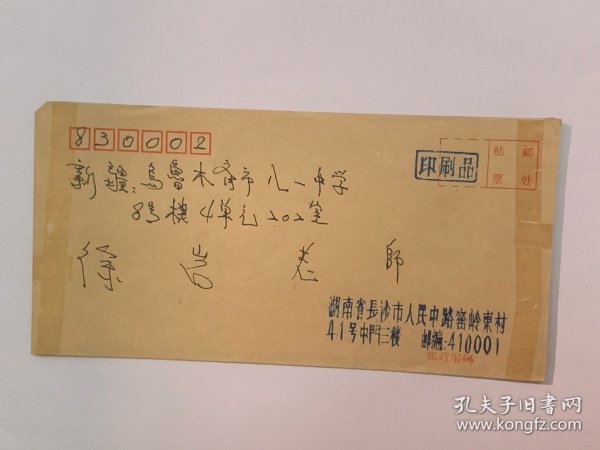 830002
贴 邮
票 处
印刷品
新疆:烏魯木齊市八一中学
8号樓4单元202室
徐 老 師
湖南省長沙市人民中路窑岭東村
41号中門三楼 邮编:410001
邮政编码
孔夫子旧书网
www.kongfz.com